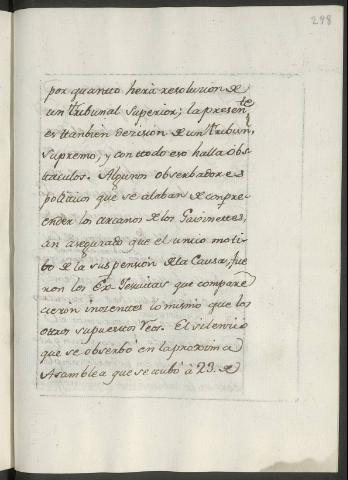 298
por quantto herà resoluzion de
un tribunal Superior; la presente
es ttanbien dezision de un tribun,
supremo, y con ttodo eso halla obs-
ttaculos. Algunos observadores
politicos que se alaban de conpre-
ender los arcanos de los Gavinettes,
an asegurado que el unico moti-
bo de la suspension de la Causa, fue
ron los Ex-Jesuitas que compare
cieron inozentes lo mismo que los
ottros supuestos Reos. El silencio
que se observó en la proxima
Asamblea que se tubó à 23. de